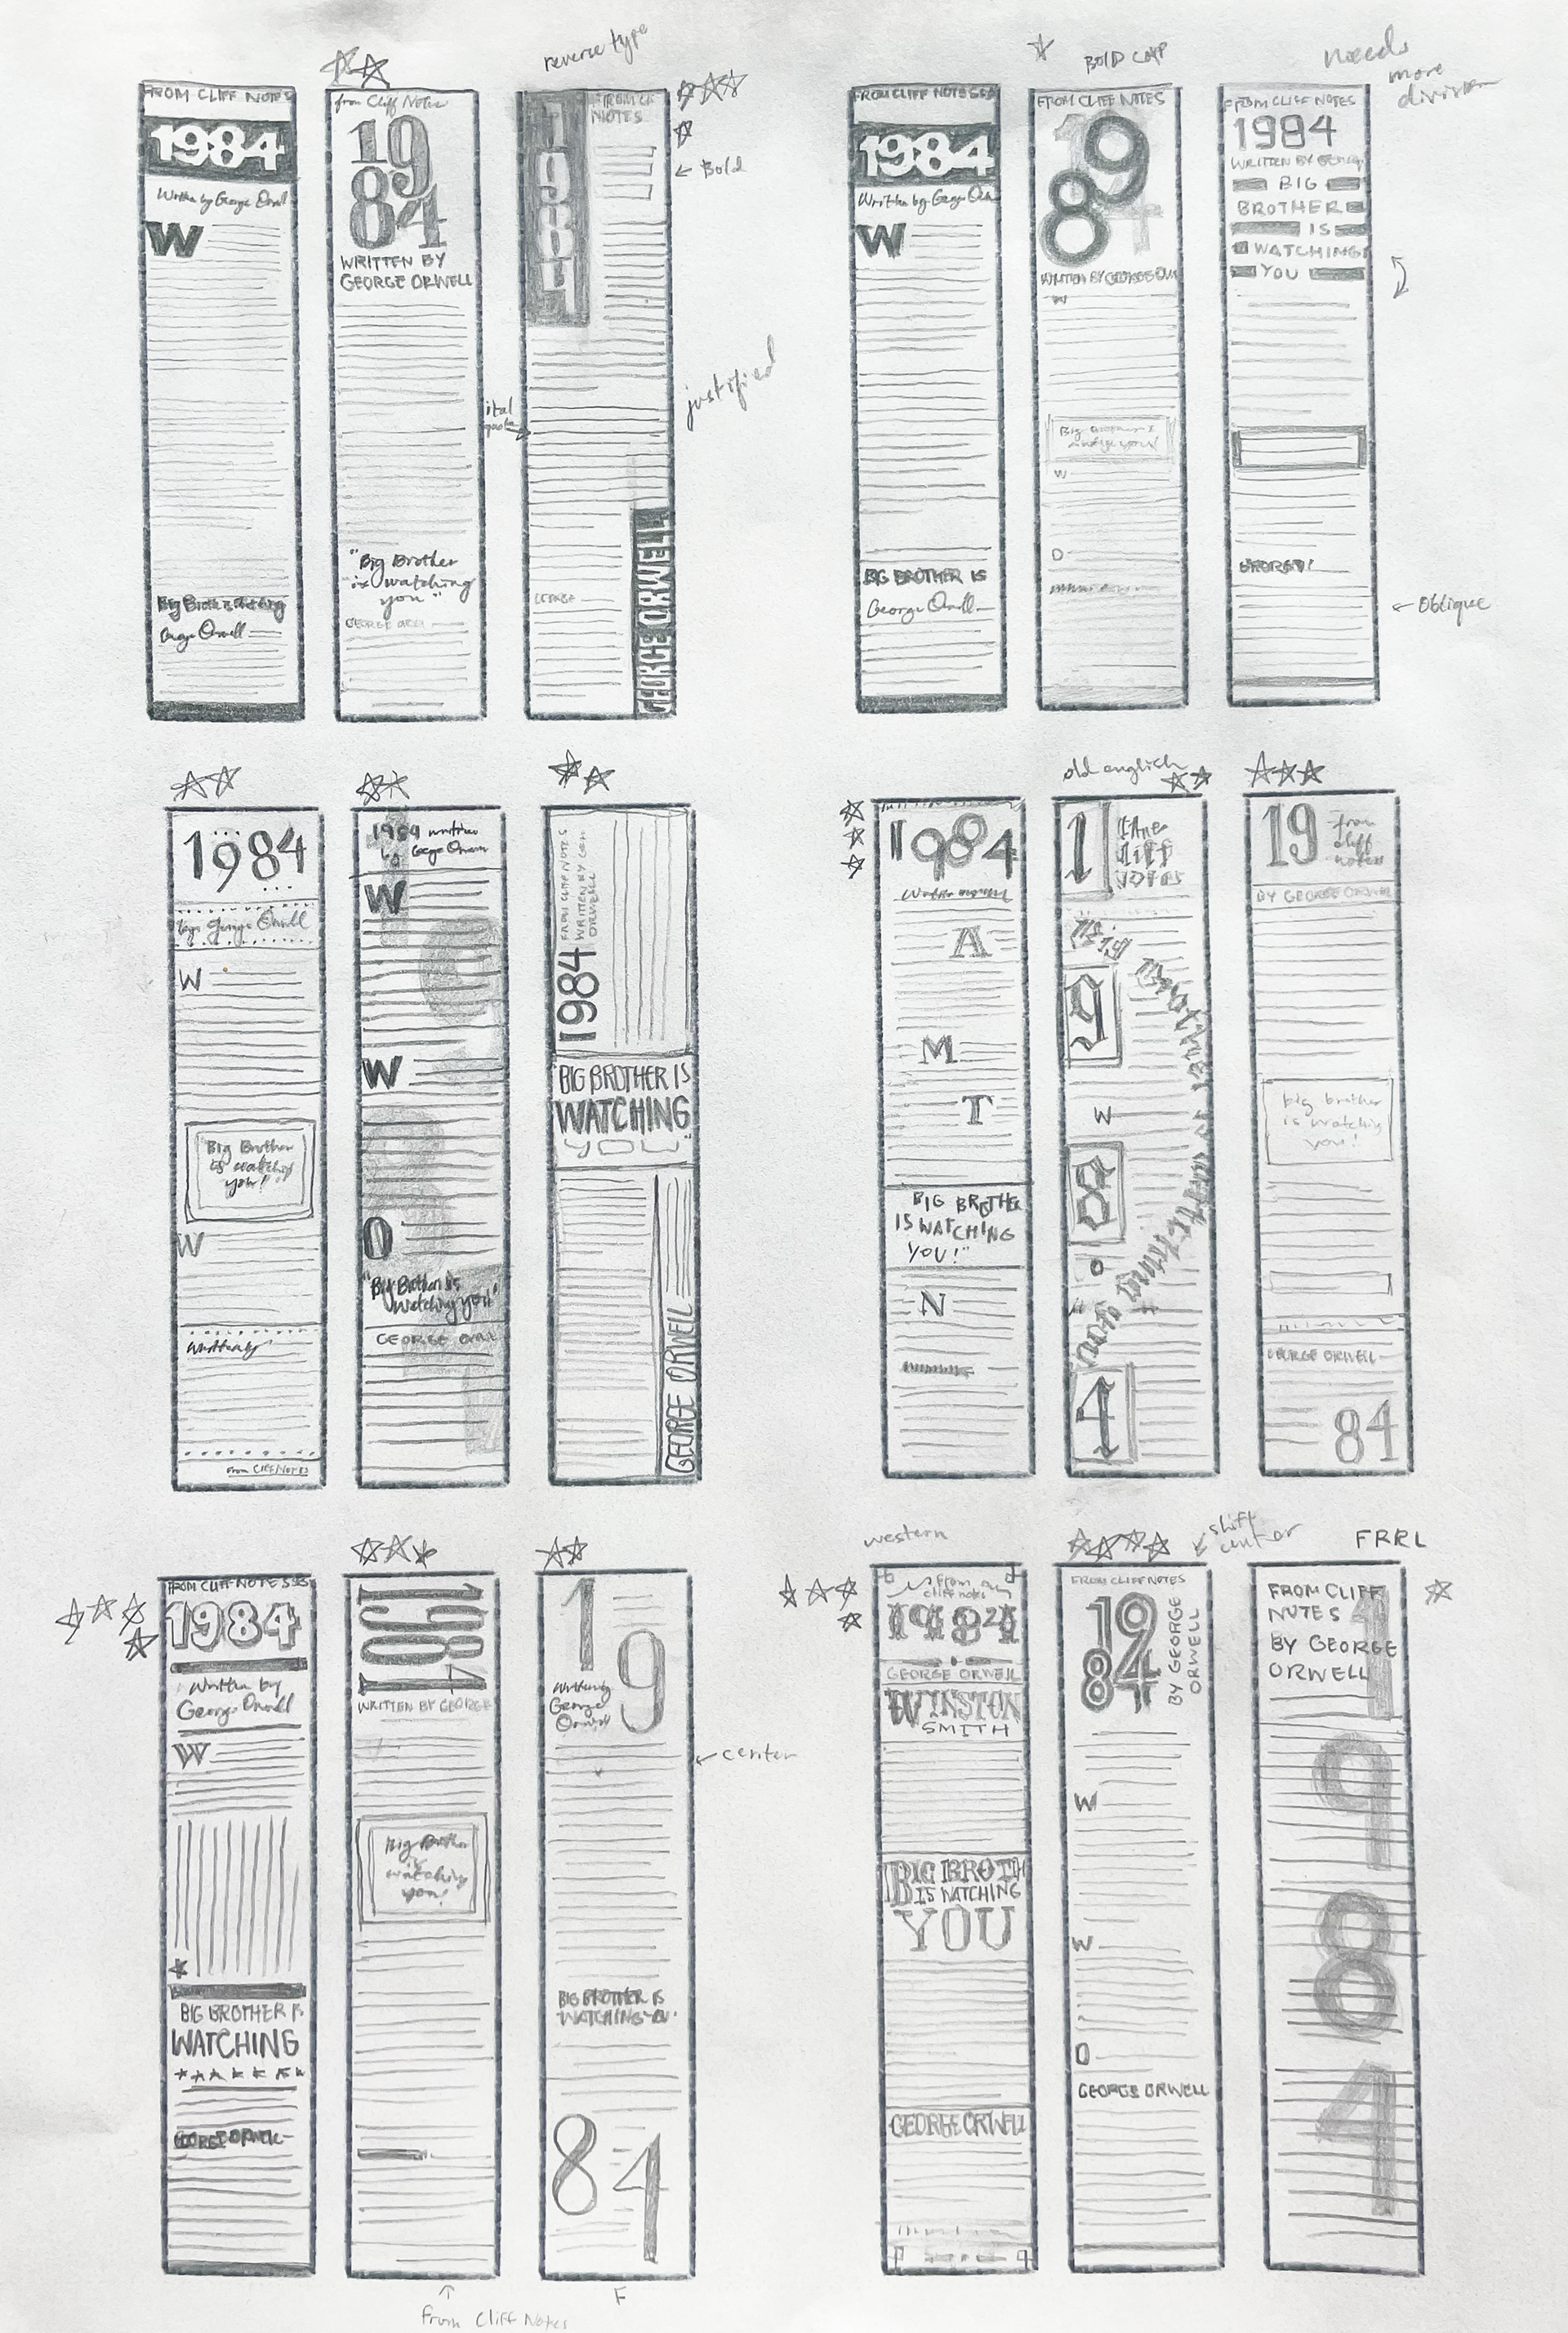 reverse type
BOLD CAP
needs
more
division
FROM CLIFF NOTES
1984
Written by George Orwell
W
George Orwell
from Cliff Notes
19
84
WRITTEN BY
GEORGE ORWELL
"Big Brother
is watching
you"
1
9
8
4
NOTES
← Bold
justified
GEORGE ORWELL
FROM CLIFF NOTES
1984
Written by George
W
BIG BROTHER IS
George Orwell
FROM CLIFF NOTES
19
84
W
W
O
FROM CLIFF NOTES
1984
WRITTEN BY
BIG
BROTHER
IS
WATCHING
YOU
← Oblique
1984
George Orwell
W
"Big Brother
is watching
you!"
W
From CLIFF NOTES
1984 written
by George Orwell
W
W
O
"Big Brother is
watching you"
GEORGE
FROM CLIFF NOTES
WRITTEN BY
ORWELL
1984
BIG BROTHER IS
WATCHING
YOU"
GEORGE ORWELL
1984
A
M
T
BIG BROTHER
IS WATCHING
YOU!"
N
old english
1
Cliff
Notes
Big
9
W
8
O
4
19
from
cliff
notes
BY GEORGE ORWELL
big brother
is watching
you!
GEORGE ORWELL
84
FROM CLIFF NOTES
1984
Written by
George Orwell
W
BIG BROTHER IS
WATCHING
1984
WRITTEN BY GEORGE
Big Brother
is
watching
you!
↑
from Cliff Notes
1
9
George
Orwell
← center
BIG BROTHER IS
WATCHING
8
4
F
western
from
cliff notes
1984
GEORGE ORWELL
WINSTON
SMITH
BIG BROTH
IS WATCHING
YOU
GEORGE ORWELL
shift
center
FROM CLIFF NOTES
19
84
BY GEORGE
ORWELL
W
W
O
GEORGE ORWELL
FRRL
FROM CLIFF
NOTES
BY GEORGE
ORWELL
1
9
8
4